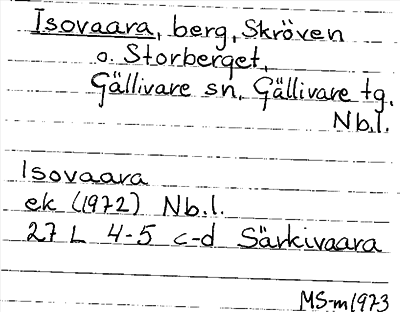 Isovaara, berg, Skröven
o. Storberget,
Gällivare sn, Gällivare tg.
Nb.l.
Isovaara
ek (1972) Nb.l.
27 L 4-5 c-d Särkivaara
MS-m1973